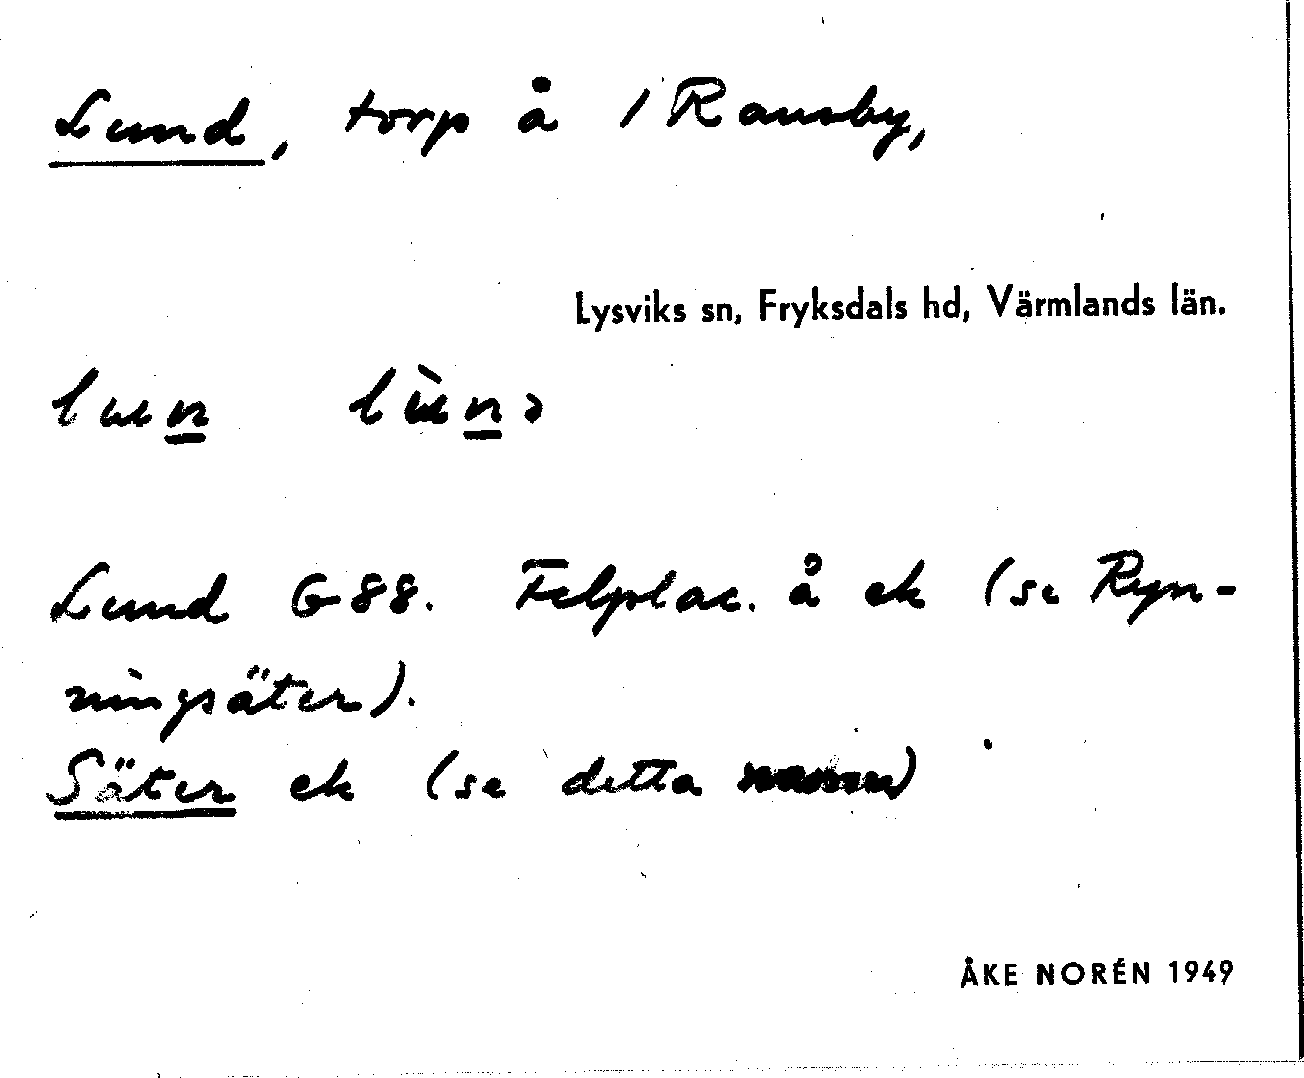 Lund, torp å 1 Ransby,
Lysviks sn, Fryksdals hd, Värmlands län.
lun lùnə
Lund G 88. Felplac. å ek (se Ryn-
ningsäter).
Säter ek (se detta namn)
ÅKE NORÉN 1949